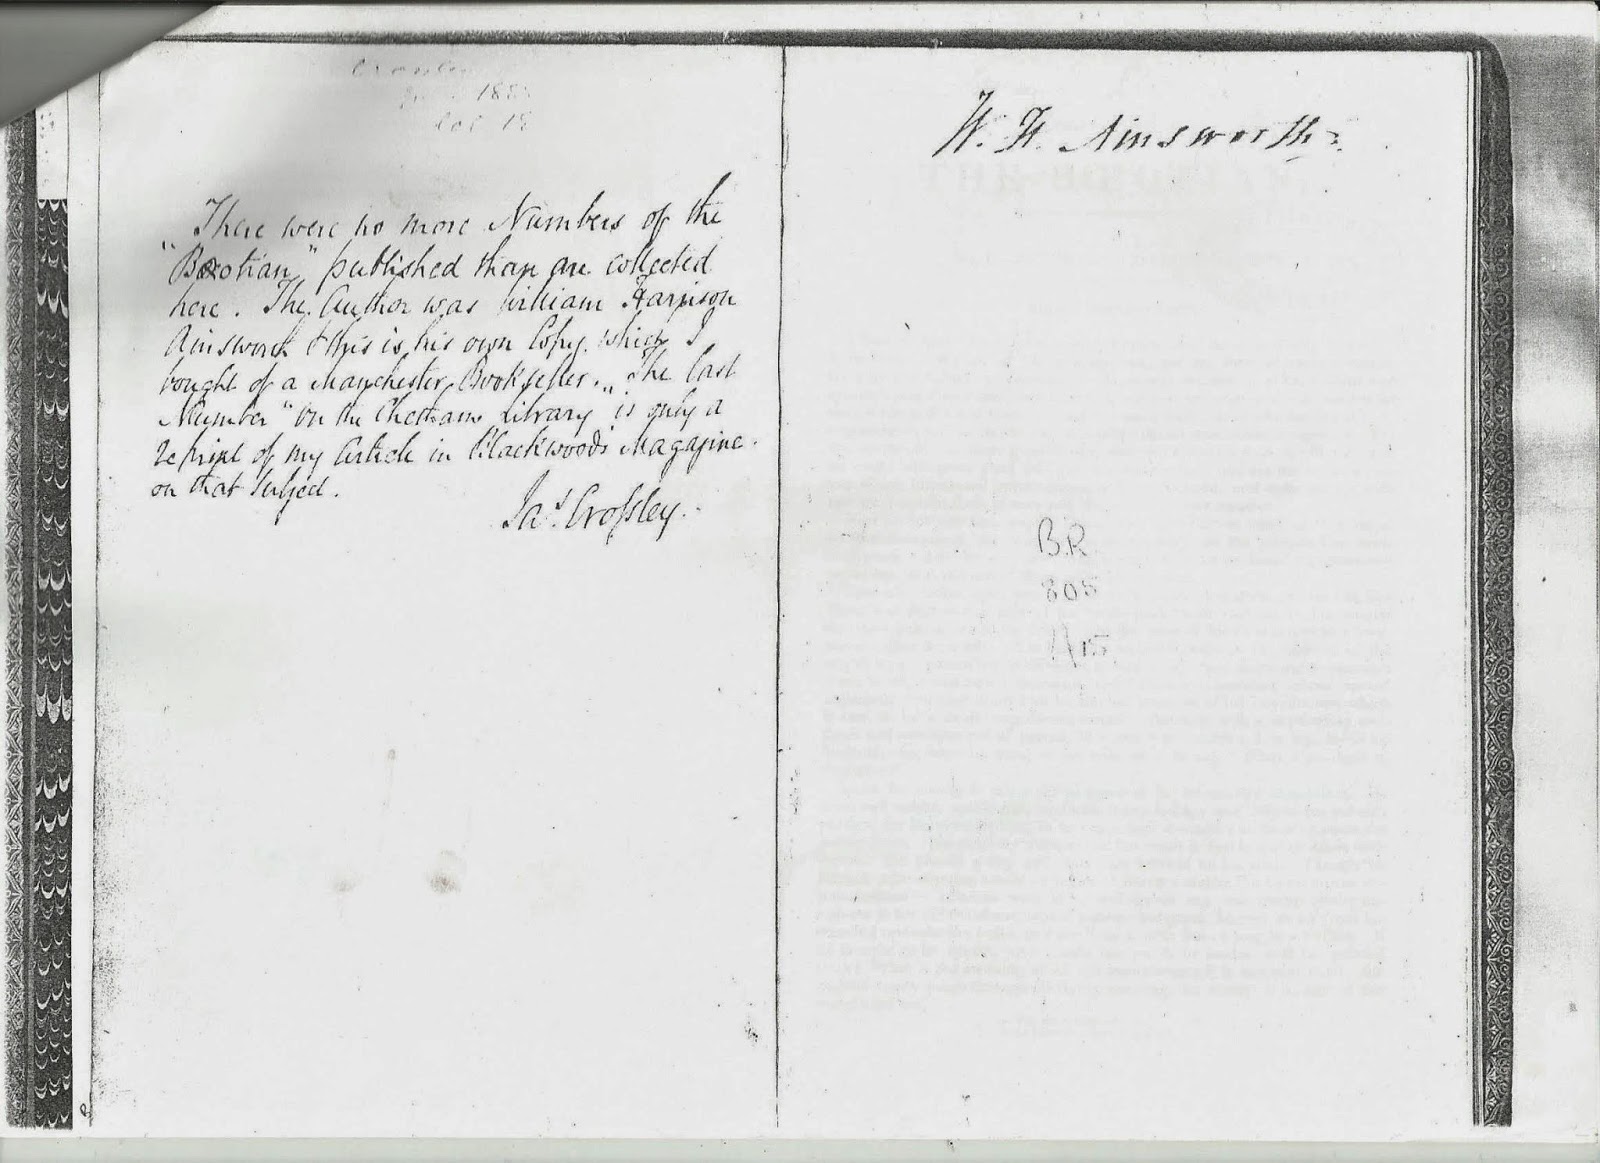 188
Vol 18
There were no more Numbers of the
"Bœotian" published than are collected
here. The Author was William Harrison
Ainsworth & this is his own Copy, which I
bought of a Manchester Bookseller. The last
Number "On the Chetham Library" is only a
reprint of my Article in Blackwoods Magazine
on that Subject.
Jas. Crossley.
W. H. Ainsworth
B.R.
805